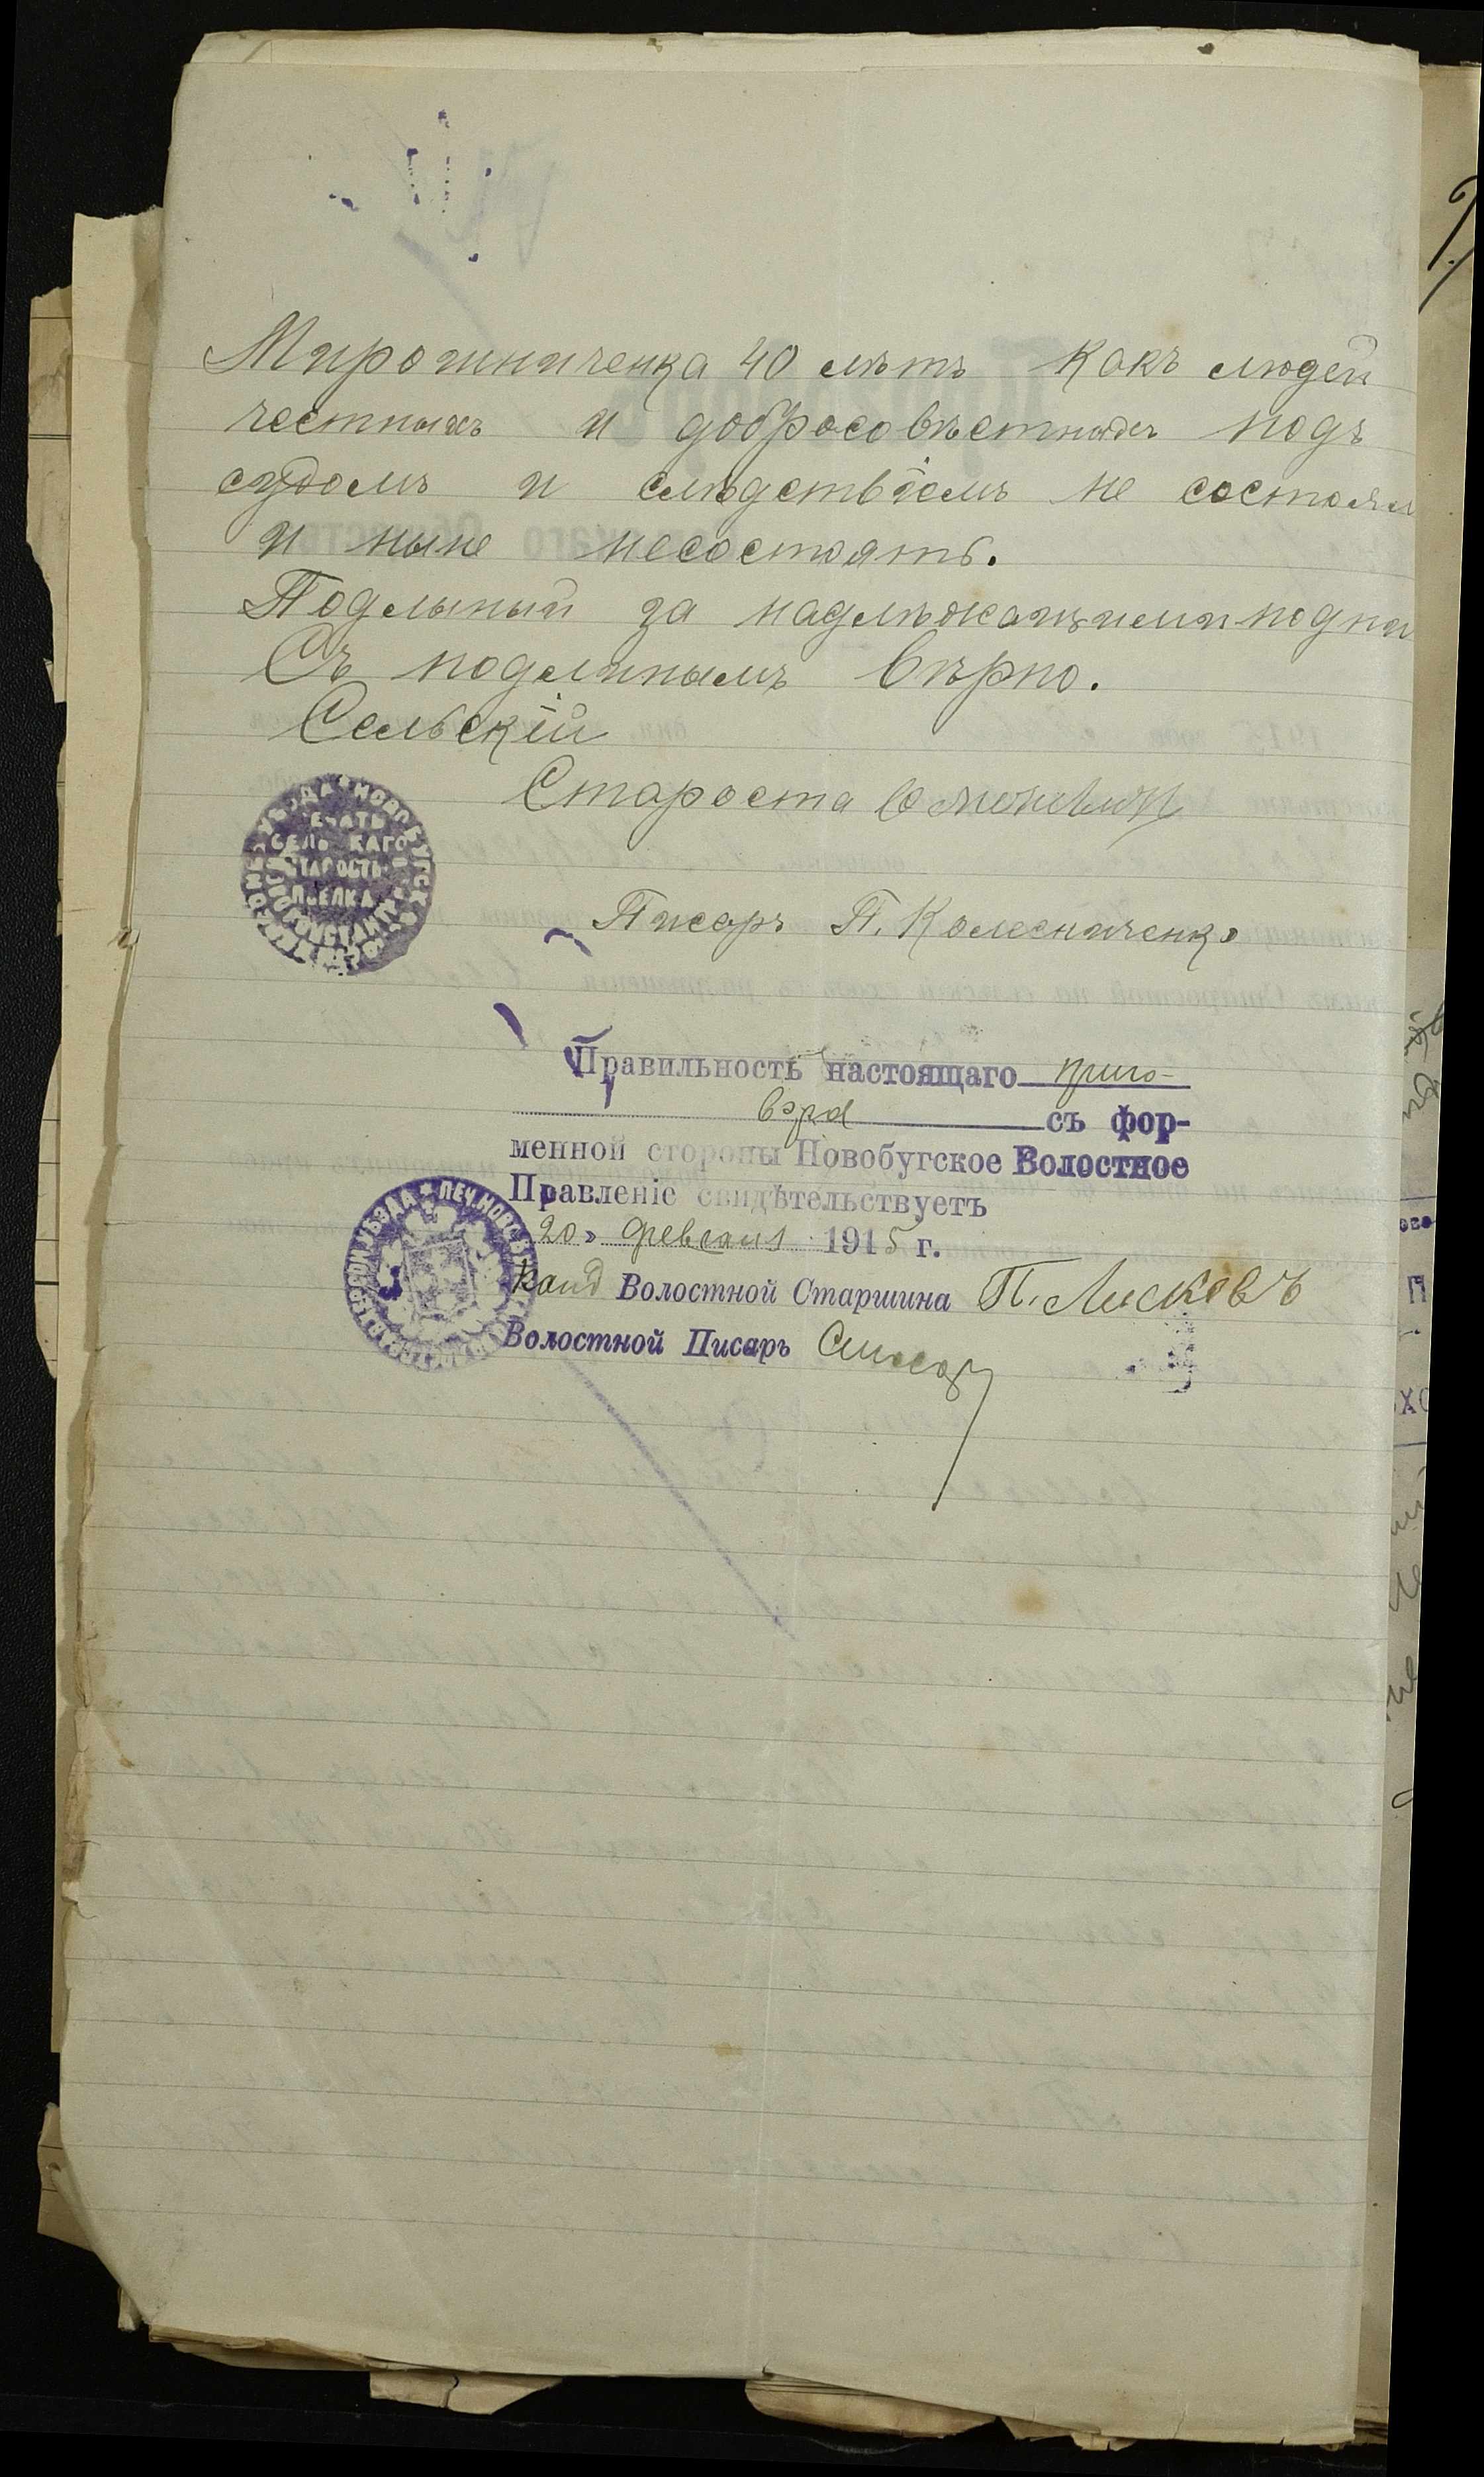 Мирошниченка 40 лѣтъ какъ людей
честныхъ и добросовѣстныхъ подъ
судомъ и слѣдствіемъ не состояли
и ныне несостоятъ.
Подлыный за надлѣжащими подпи
Съ подлинымъ вѣрно.
Сельскій
Староста
Писарь П. Колесниченко
Правильность настоящаго приго-
вора съ фор-
менной стороны Новобугское Волостное
Правленіе свидѣтельствуетъ
20 февраля 1915 г.
Канд Волостной Старшина П. Лисковъ
Волостной Писарь